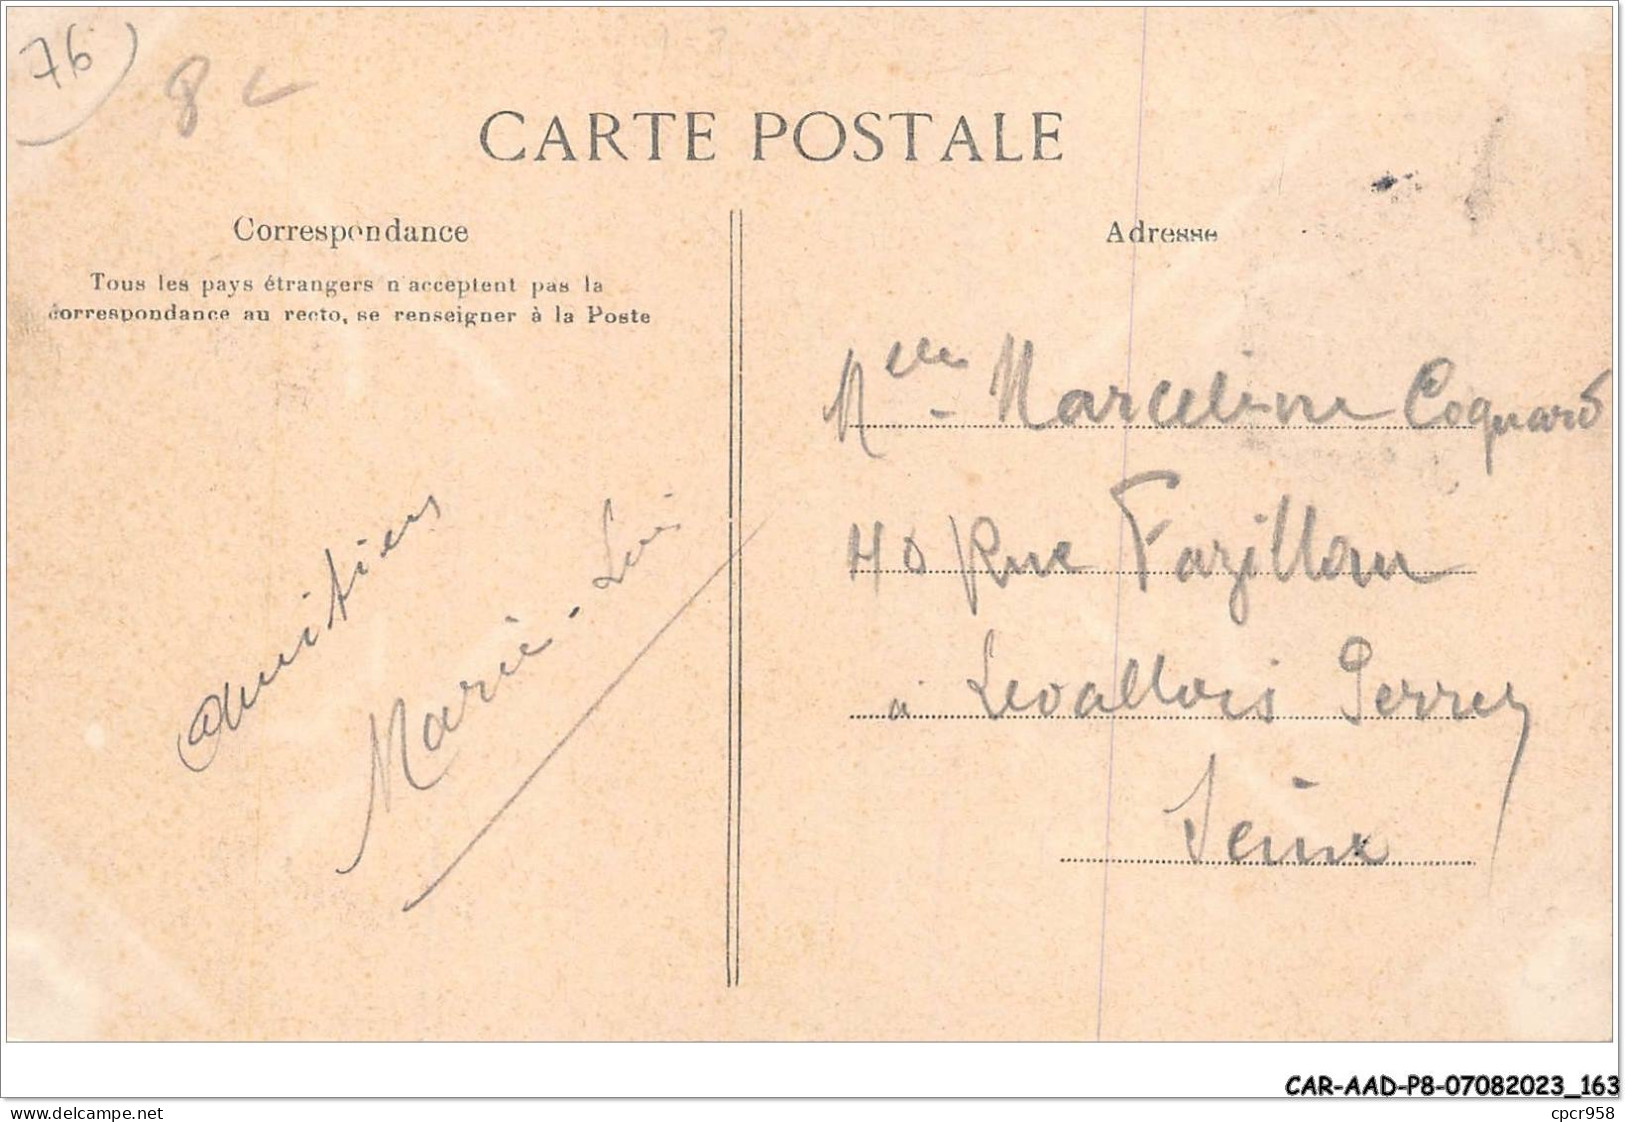 76
8
CARTE POSTALE
Correspondance
Tous les pays étrangers n'acceptent pas la
correspondance au recto, se renseigner à la Poste
Adresse
Melle Marceline Coquard
40 Rue Fazillau
à Levallois Perret
Seine
Amitiés
Marie-
CAR-AAD-P8-07082023_163
www.delcampe.net
cpcr958